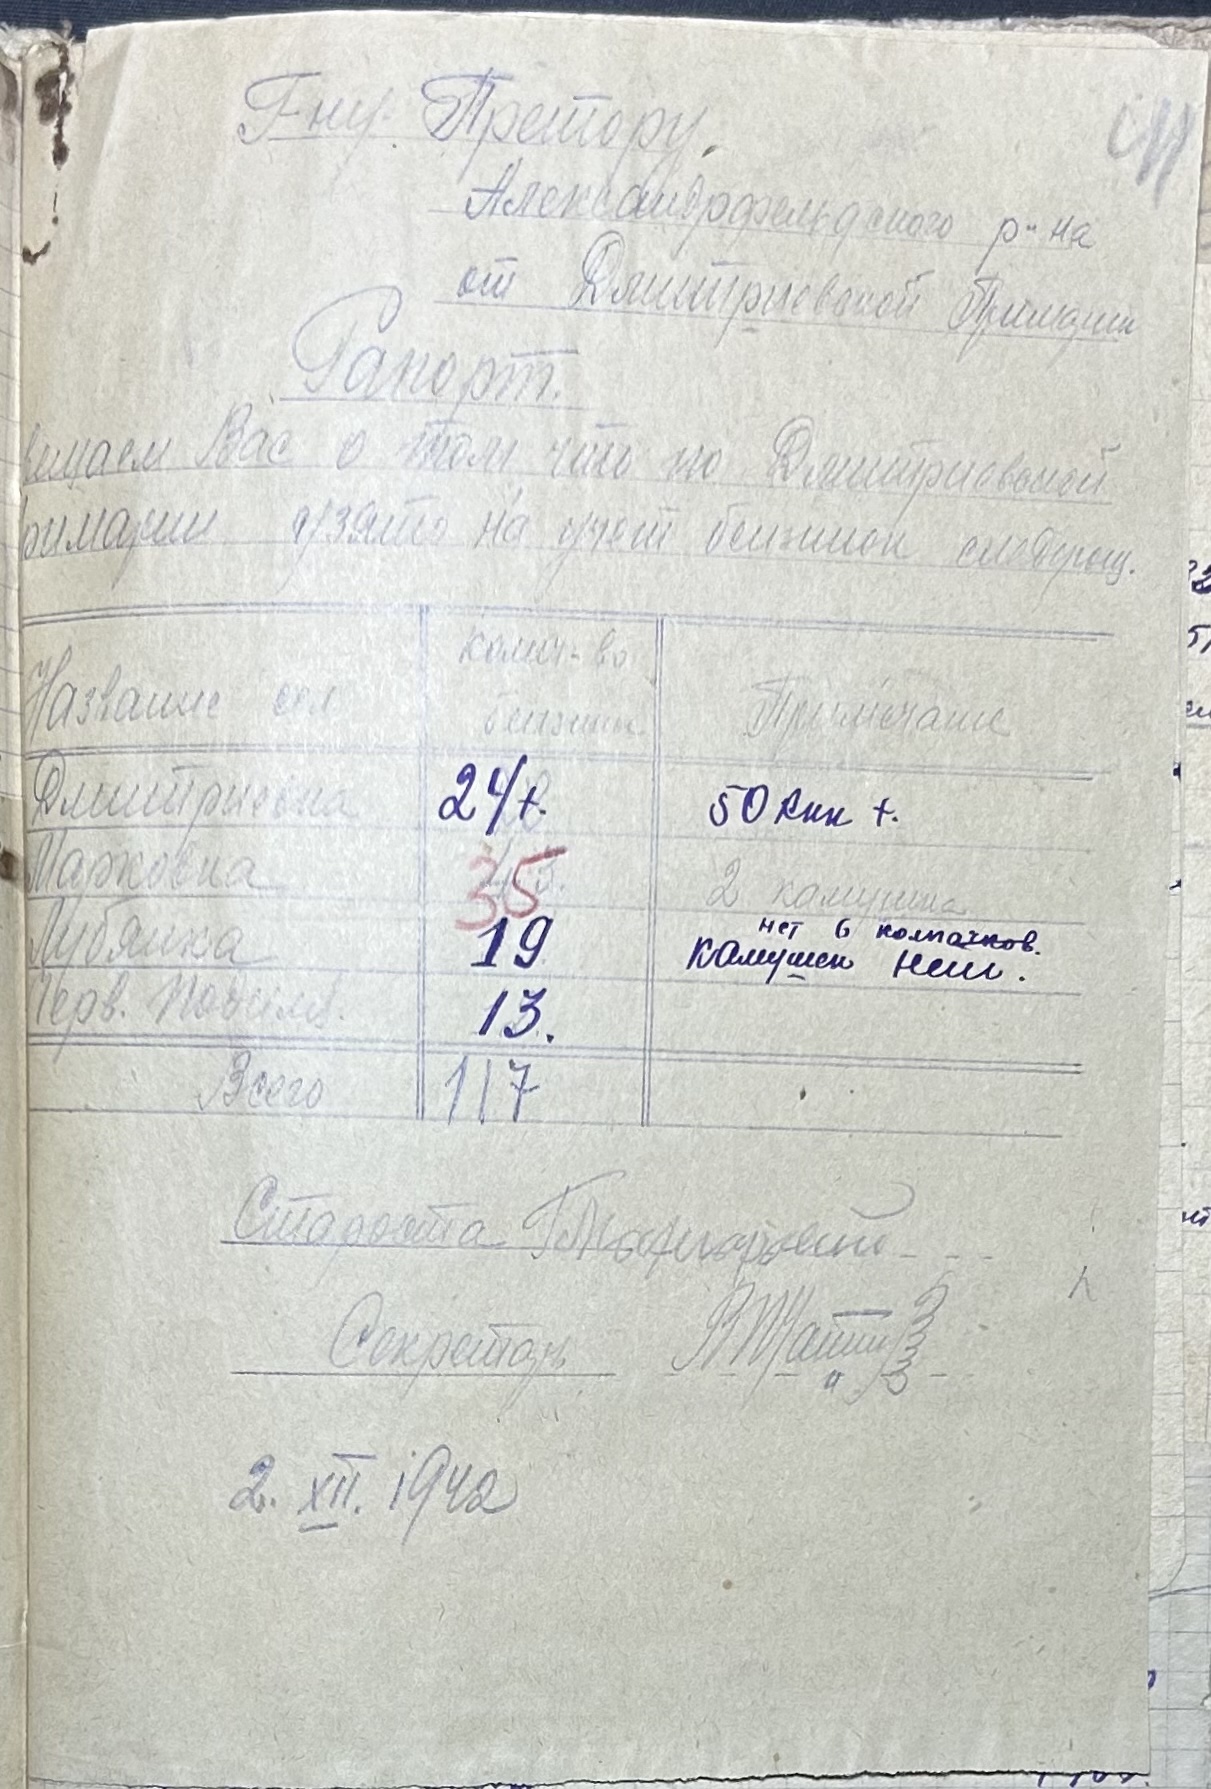 Г-ну. Претору.
Александрфельдского р-на
от Дмитриевской Примарии
Рапорт.
вещаем Вас о том что по Дмитриевской
римарии взято на учет бензинок следующ.
Название сел
колич-во
бензинок
Примечание
Дмитриевка 24 50 кнн +.
Марковка 35 2 камушка
Лубянка 19 нет 6 колпачков.
камушек нет.
Черв. 13.
Всего 117
Староста
Секретарь
2. XII. 1942